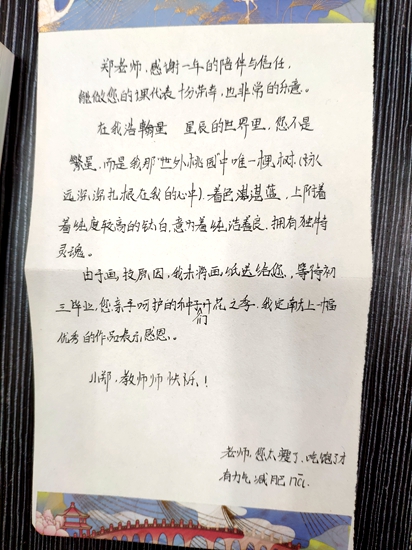 郑老师，感谢一年的陪伴与信任，
能做您的课代表十分荣幸，也非常的乐意。
在我浩翰量 星辰的世界里，您不是
繁星，而是我那“世外桃园”中唯一一棵树（永
远深深扎根在我的心中）。着色湛湛蓝，上附着
着纯度较高的钛白，意为着纯洁善良，拥有独特
灵魂。
由于画技原因，我未将画纸送给您，等待初
三毕业，您亲手呵护的种子们开花之季，我定献上一幅
优秀的作品表示感恩。
小郑，教师师快乐！
老师，您太瘦了，吃饱了才
有力气减肥